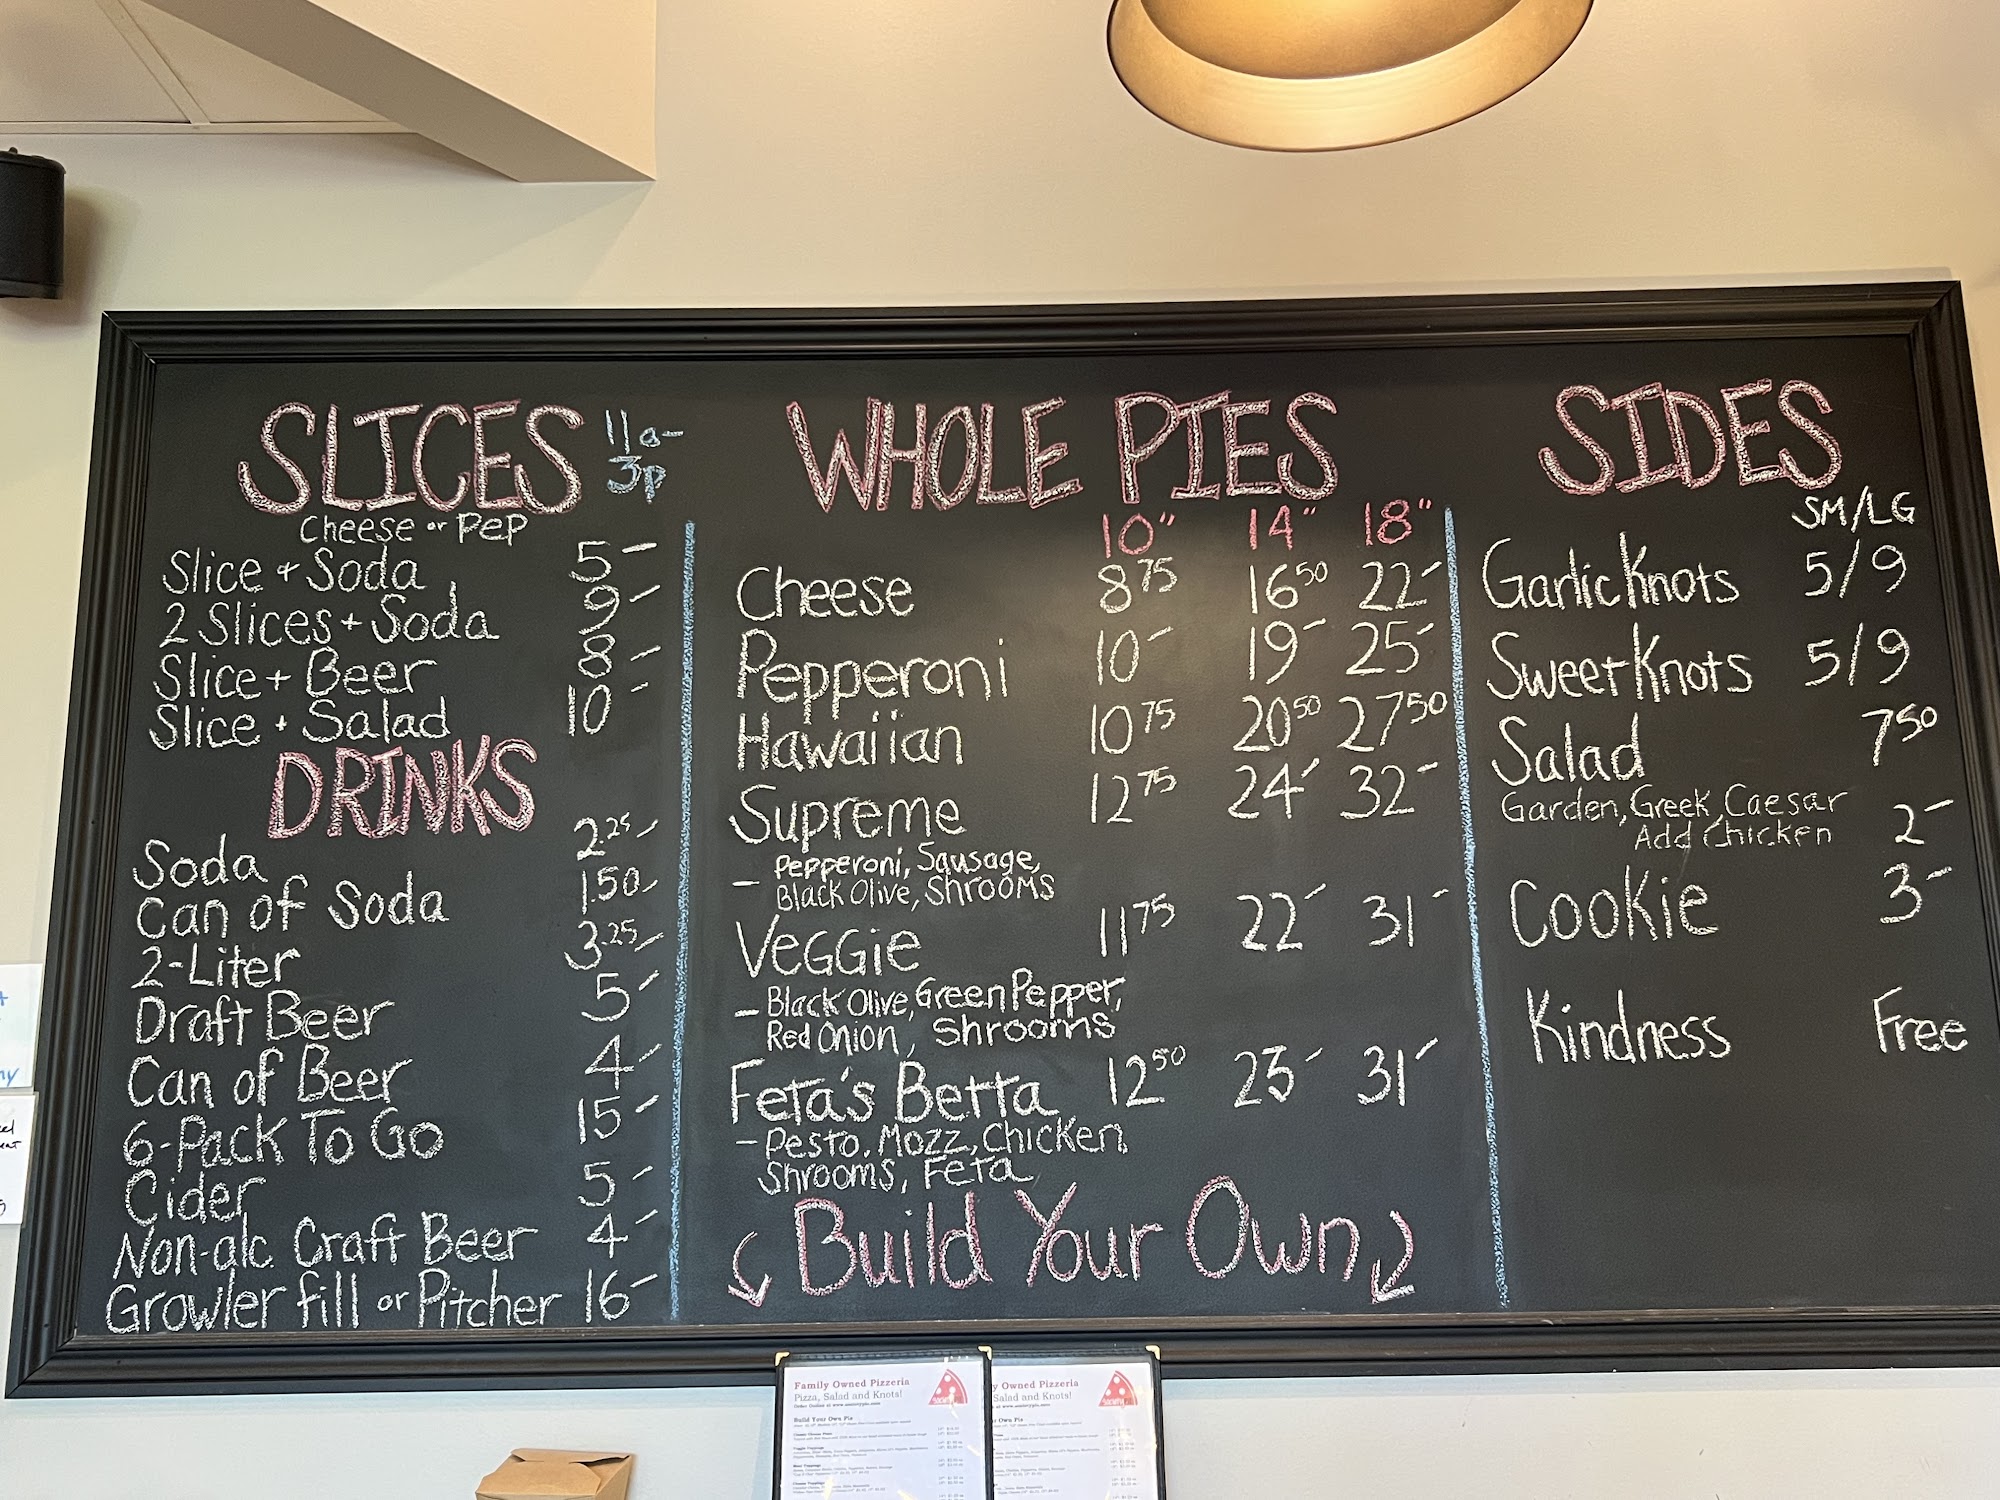 SLICES 11a-3p
Cheese or Pep
Slice + Soda 5-
2 Slices + Soda 9-
Slice + Beer 8-
Slice + Salad 10-
DRINKS
Soda 2.25-
Can of Soda 1.50-
2-Liter 3.25-
Draft Beer 5-
Can of Beer 4-
6-Pack To Go 15-
Cider 5-
Non-alc Craft Beer 4-
Growler fill or Pitcher 16-
WHOLE PIES
10" 14" 18"
Cheese 8 75 16 50 22-
Pepperoni 10- 19- 25-
Hawaiian 10 75 20 50 27 50
Supreme 12 75 24- 32-
- Pepperoni, Sausage,
Black Olive, Shrooms
Veggie 11 75 22- 31-
- Black Olive, Green Pepper,
Red Onion, Shrooms
Feta's Betta 12 50 23- 31-
- Pesto, Mozz, Chicken,
Shrooms, Feta
Build Your Own
SIDES
SM/LG
Garlic Knots 5/9
Sweet Knots 5/9
Salad 7 50
Garden, Greek, Caesar
Add Chicken 2-
Cookie 3-
Kindness Free
Family Owned Pizzeria
Pizza, Salad and Knots!
Build Your Own Pie
y Owned Pizzeria
Salad and Knots!